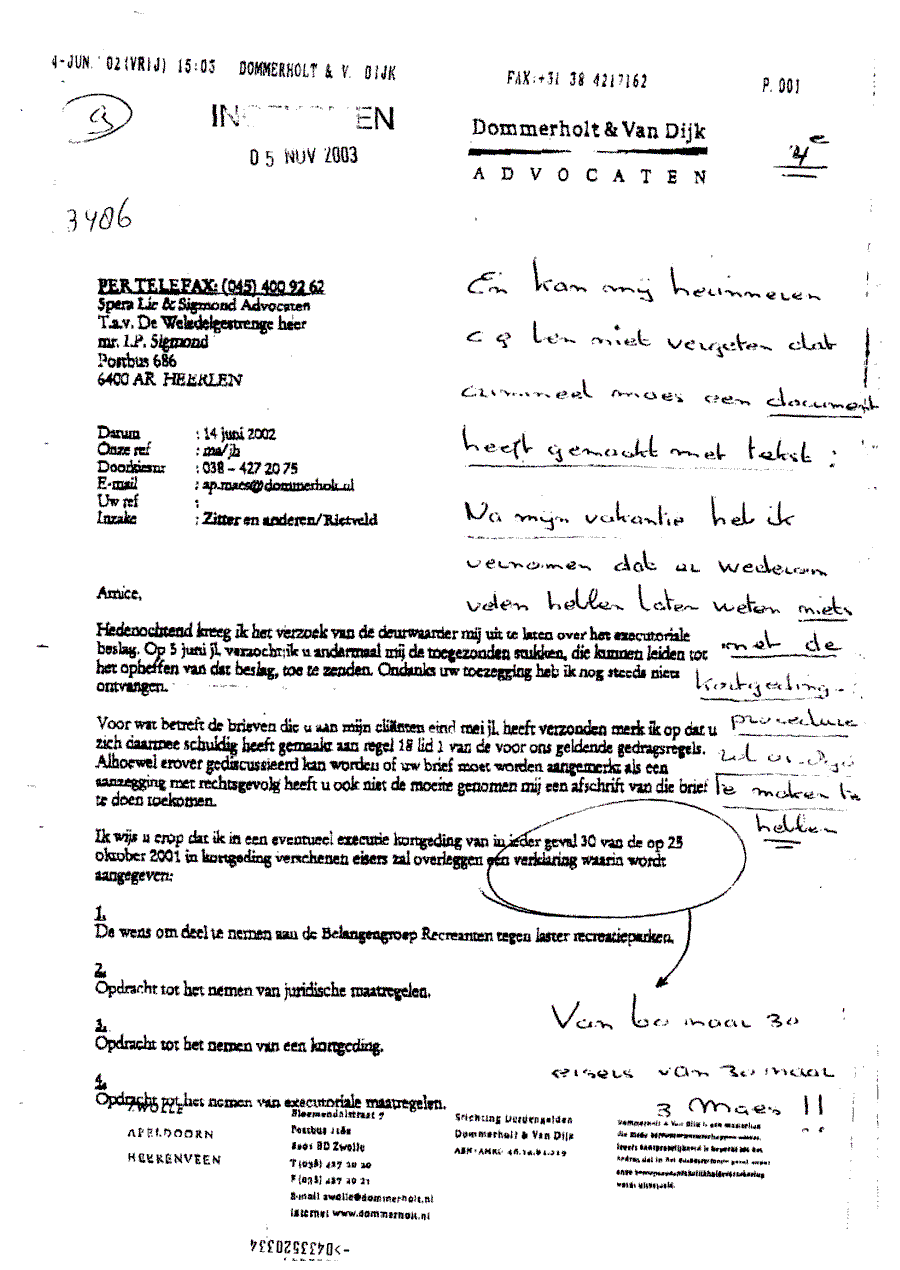 4-JUN. '02(VRIJ) 15:03 DOMMERHOLT & V. DIJK FAX:+31 38 4217162 P. 001
05 NOV 2003
Dommerholt & Van Dijk
ADVOCATEN
4e
3406
PER TELEFAX: (045) 400 92 62
Spera Lie & Sigmond Advocaten
T.a.v. De Weledelgestrenge heer
mr. I.P. Sigmond
Postbus 686
6400 AR HEERLEN
Datum : 14 juni 2002
Onze ref : ma/jh
Doorkiesnr : 038 – 427 20 75
E-mail : ap.maes@dommerholt.nl
Uw ref :
Inzake : Zitter en anderen/Rietveld
En kan mij herinneren
c q ben niet vergeten dat
crimineel maes een document
heeft gemaakt met tekst :
Na mijn vakantie heb ik
vernomen dat u wederom
velen hebben laten weten niets
met de
kortgeding-
procedure
te maken te
hebben
Amice,
Hedenochtend kreeg ik het verzoek van de deurwaarder mij uit te laten over het executoriale
beslag. Op 5 juni jl. verzocht ik u andermaal mij de toegezonden stukken, die kunnen leiden tot
het opheffen van dat beslag, toe te zenden. Ondanks uw toezegging heb ik nog steeds niets
ontvangen.
Voor wat betreft de brieven die u aan mijn cliënten eind mei jl. heeft verzonden merk ik op dat u
zich daarmee schuldig heeft gemaakt aan regel 18 lid 1 van de voor ons geldende gedragsregels.
Alhoewel erover gediscussieerd kan worden of uw brief moet worden aangemerkt als een
aanzegging met rechtsgevolg heeft u ook niet de moeite genomen mij een afschrift van die brief
te doen toekomen.
Ik wijs u erop dat ik in een eventueel executie kortgeding van in ieder geval 30 van de op 25
oktober 2001 in kortgeding verschenen eisers zal overleggen een verklaring waarin wordt
aangegeven:
1.
De wens om deel te nemen aan de Belangengroep Recreanten tegen laster recreatieparken.
2.
Opdracht tot het nemen van juridische maatregelen.
3.
Opdracht tot het nemen van een kortgeding.
4.
Opdracht tot het nemen van executoriale maatregelen.
Van 60 naar 30
eisers van 30 naar
3 Maes !!
ZWOLLE
APELDOORN
HEERENVEEN
Bloemendalstraat 7
Postbus
8001 BD Zwolle
T (038) 427 20 20
F (038) 427 20 21
E-mail zwolle@dommerholt.nl
Internet www.dommerholt.nl
Stichting Derdengelden
Dommerholt & Van Dijk
->0433520334